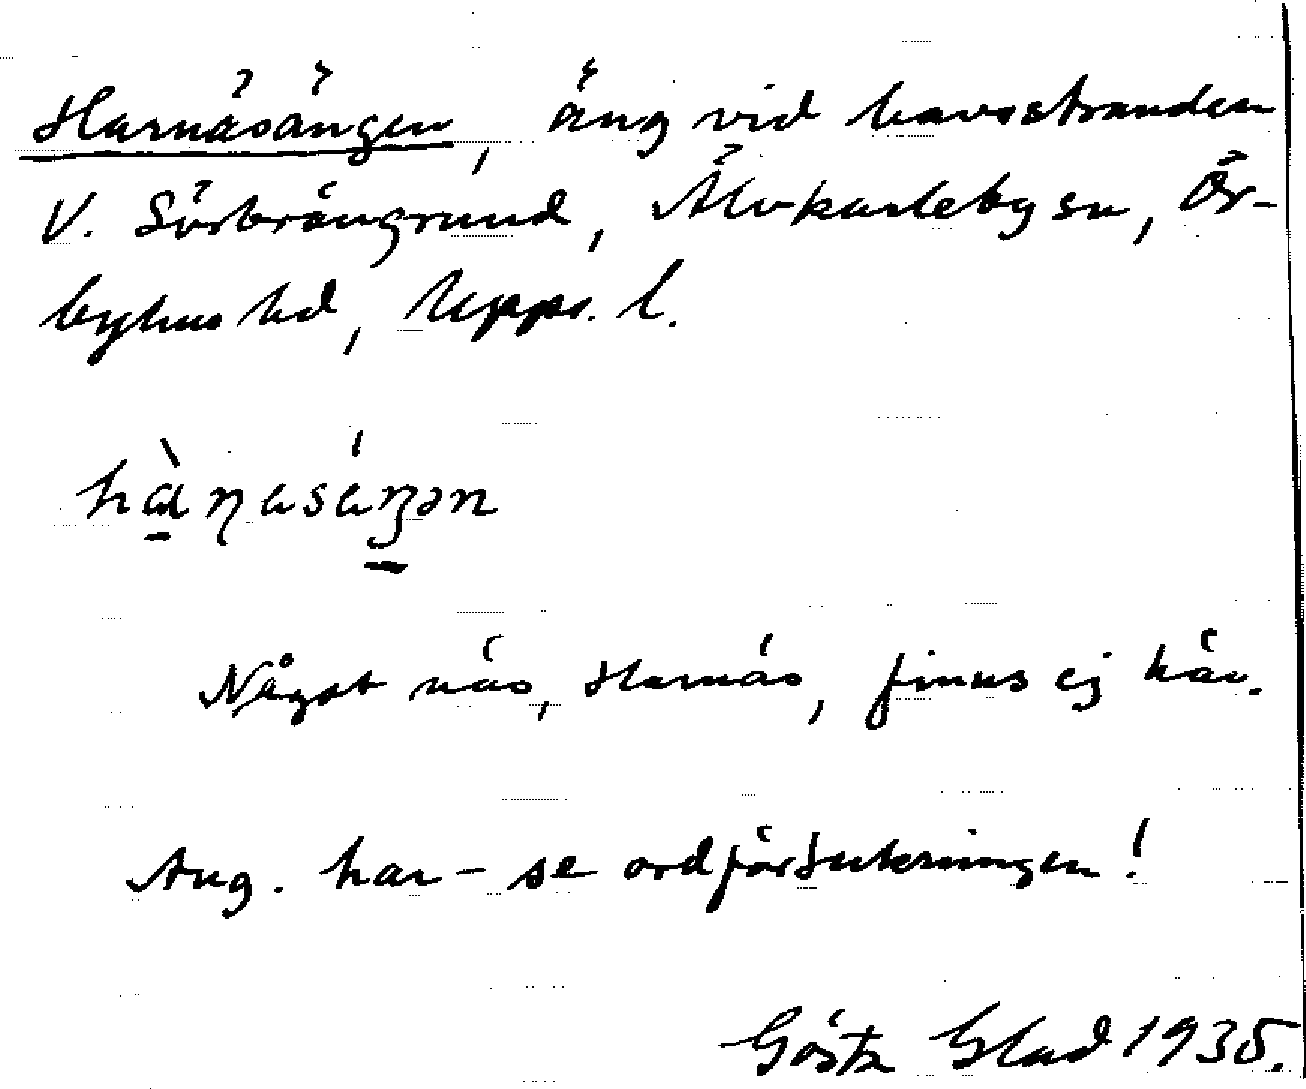 Harnäsängen, äng vid havsstranden
V. Sörbrängrund, Älvkarleby sn, Ör-
byhus hd, Upps. l.
hànasáŋən
Något näs, Harnäs, finns ej här.
Ang. har- se ordförteckningen!
Gösta Blad 1935.